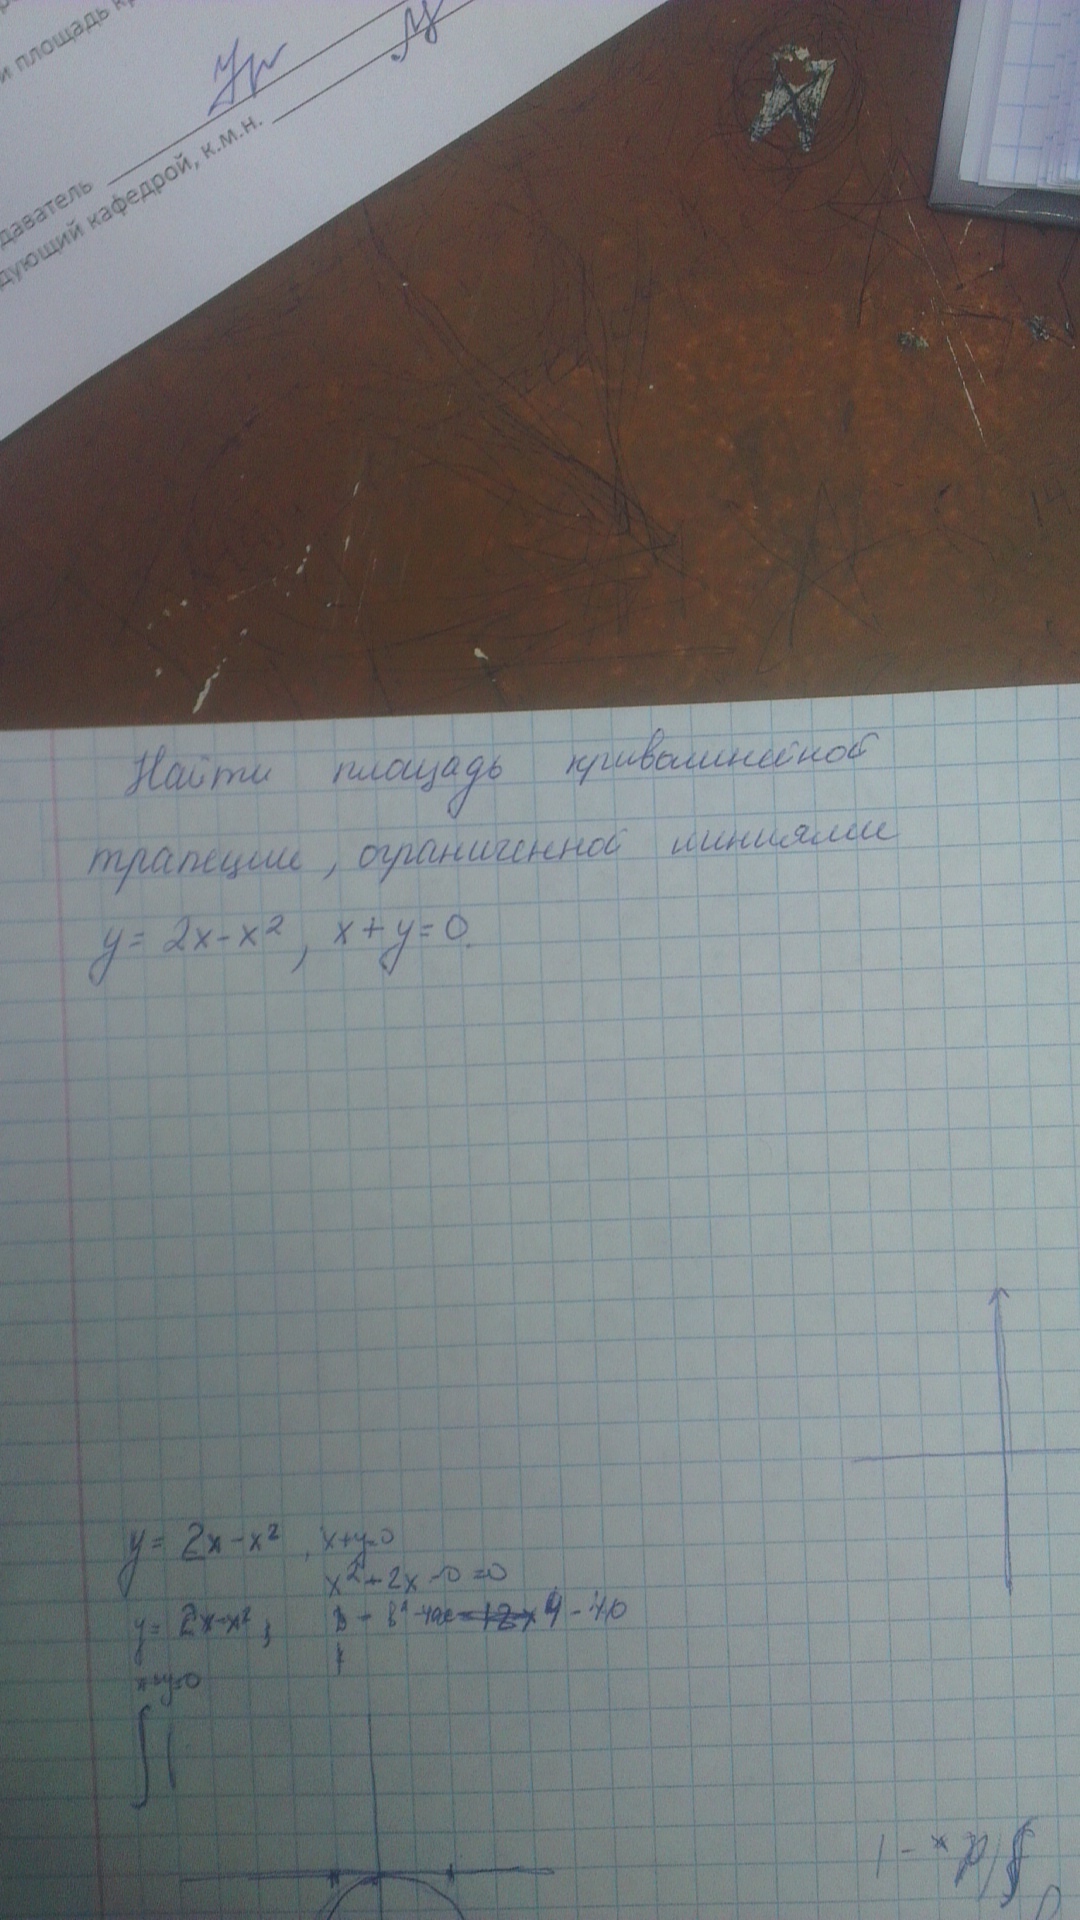 и площадь
даватель
дующий кафедрой, к.м.н.
Найти площадь криволинейной
трапеции, ограниченной линиями
y = 2x - x², x + y = 0.
y = 2x - x², x+y=0
x² + 2x - 0 = 0
y = 2x - x²;
4 - 4·0
x+y=0
∫